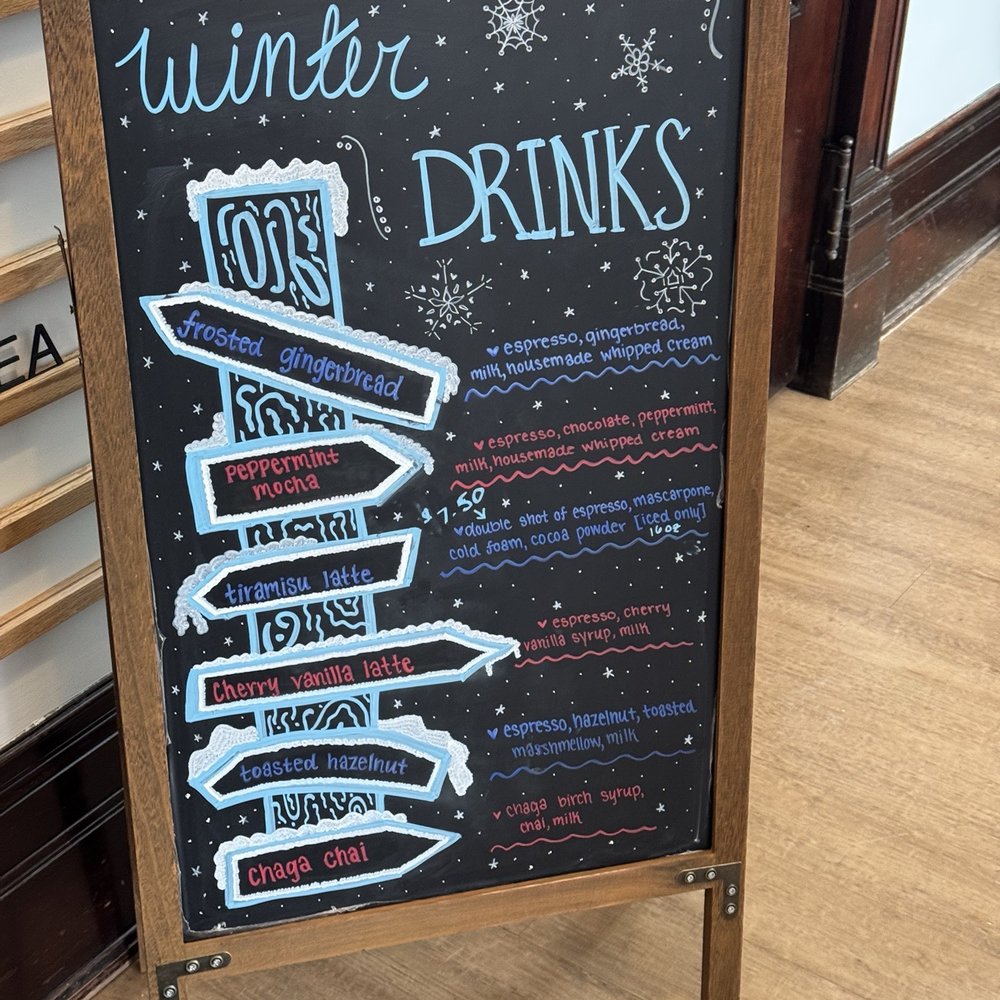 winter
DRINKS
frosted gingerbread
♥ espresso, gingerbread,
milk, housemade whipped cream
peppermint
mocha
♥ espresso, chocolate, peppermint,
milk, housemade whipped cream
tiramisu latte
$7.50
♥ double shot of espresso, mascarpone,
cold foam, cocoa powder [iced only]
16oz
Cherry vanilla latte
♥ espresso, cherry
vanilla syrup, milk
toasted hazelnut
♥ espresso, hazelnut, toasted
marshmellow, milk
chaga chai
♥ chaga birch syrup,
chai, milk
EA